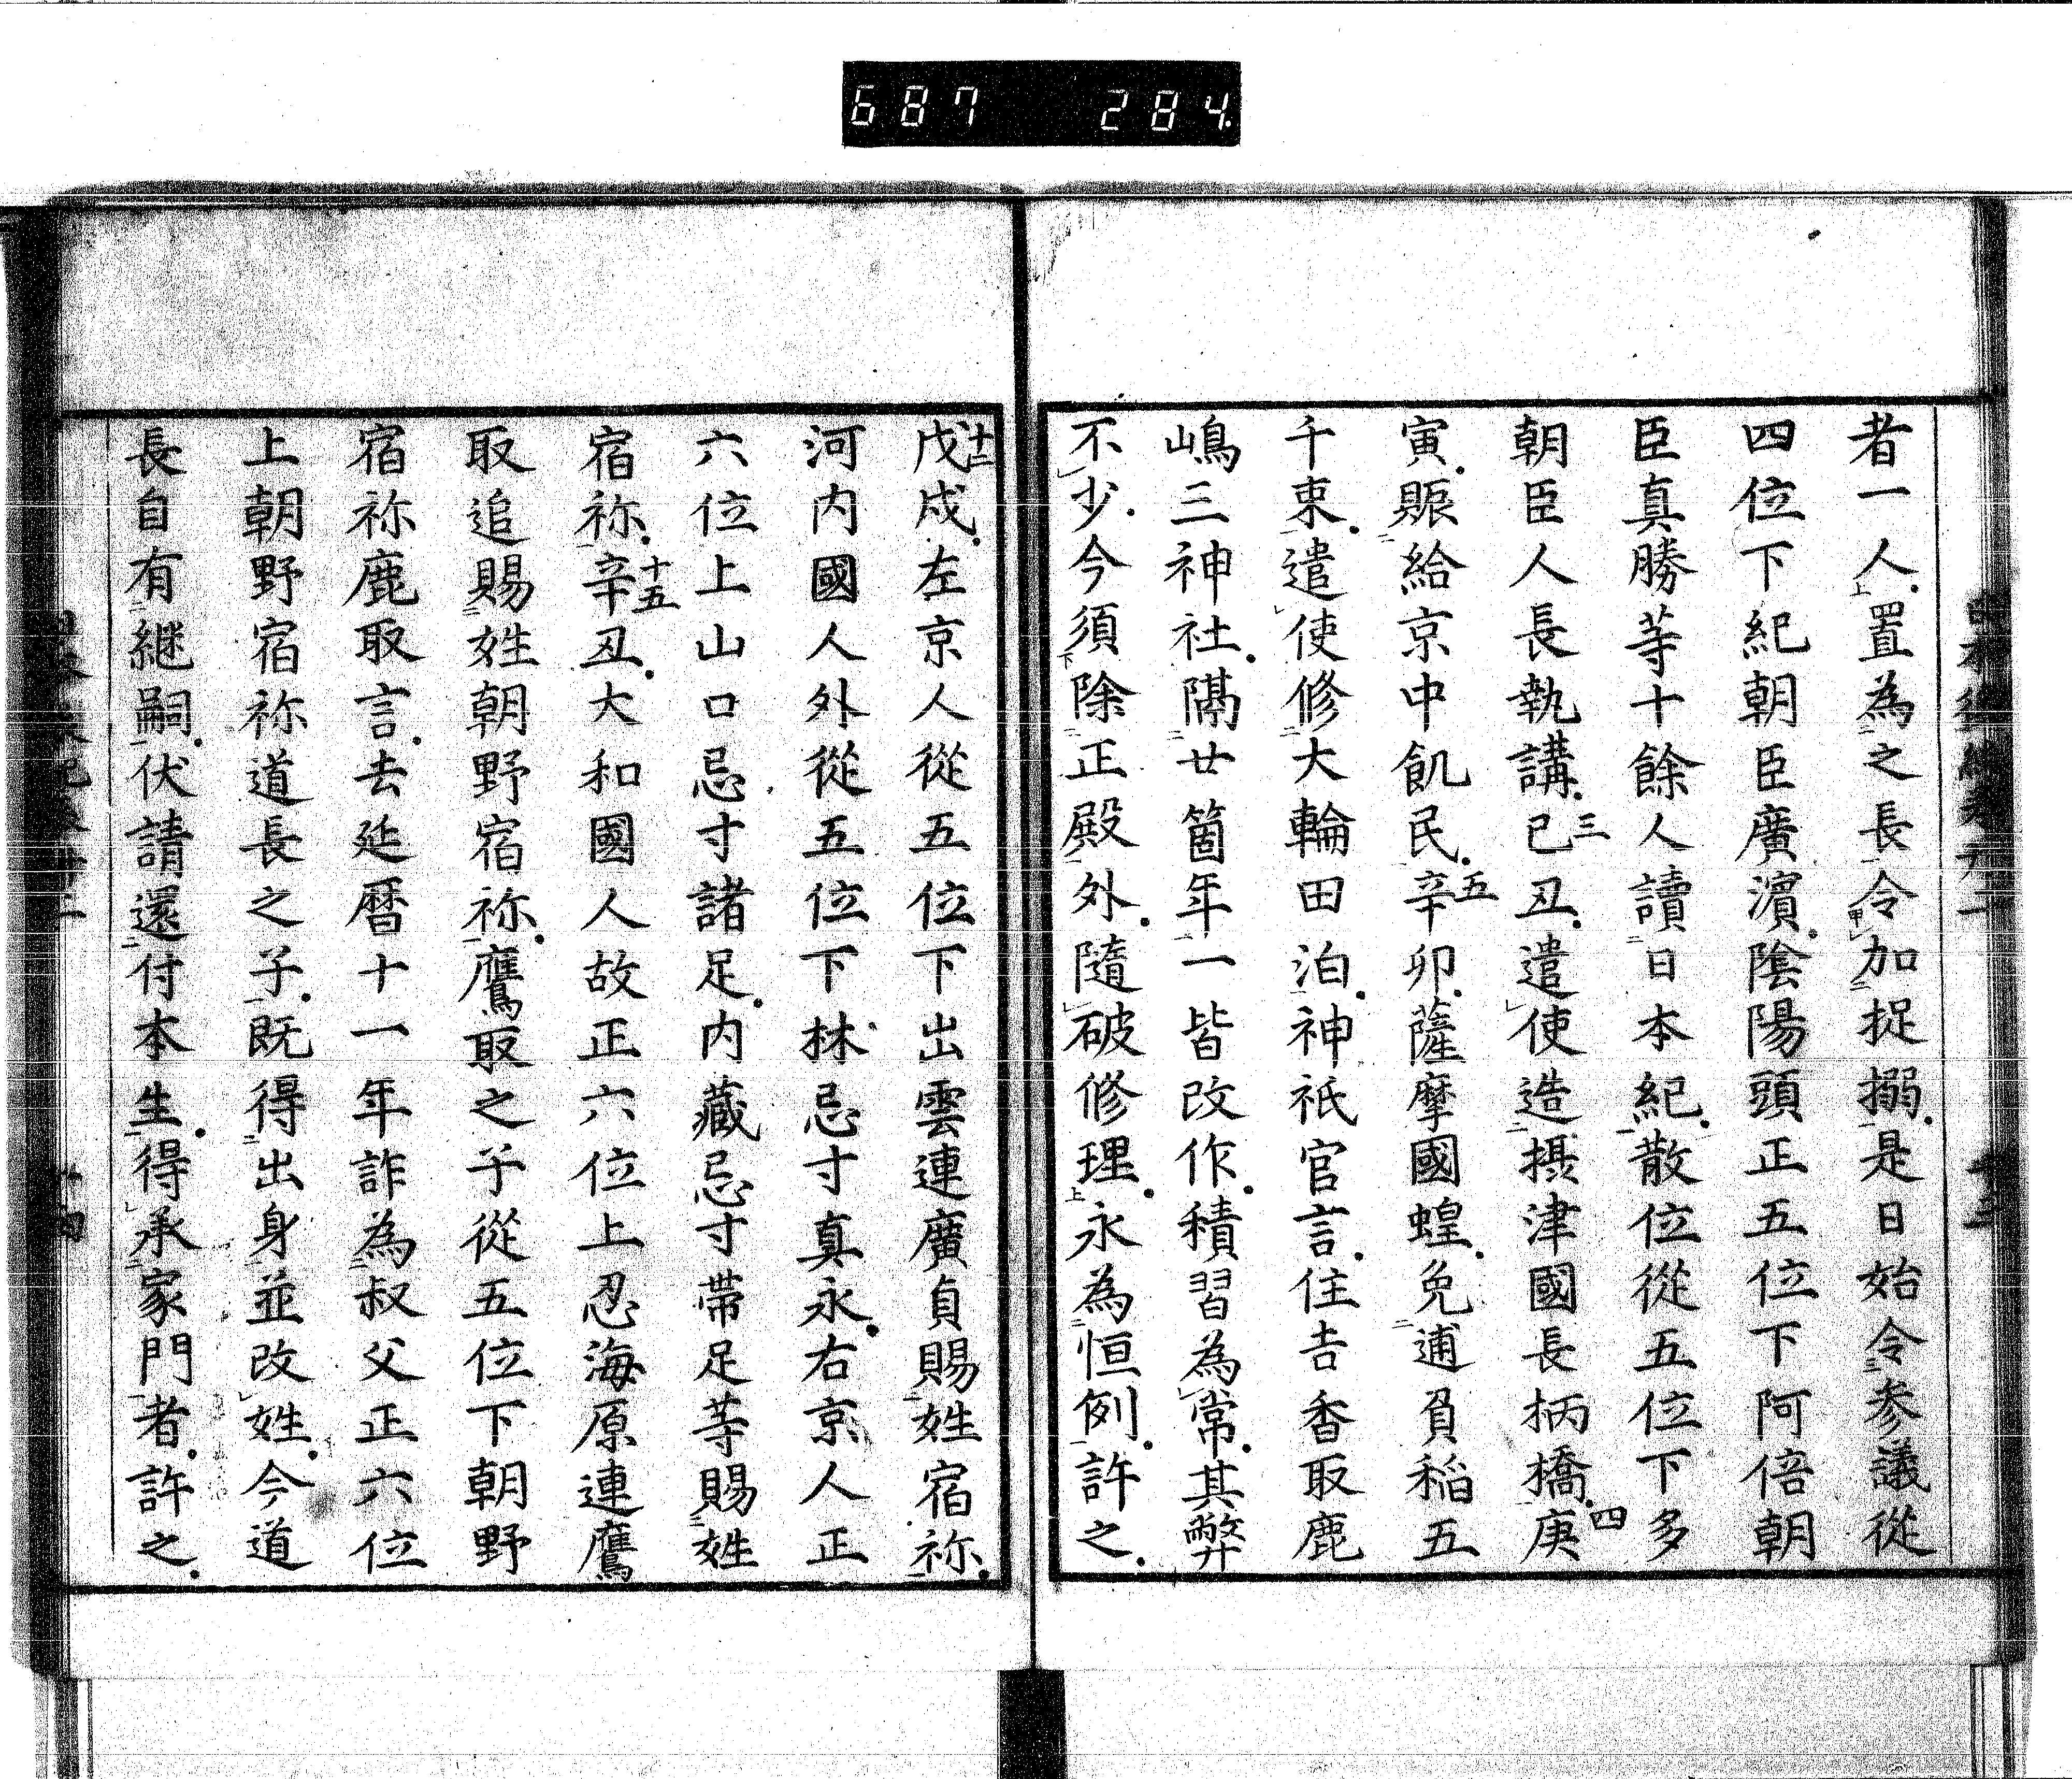 687 284
者一人置為之長令加捉搦是日始令参議從
四位下紀朝臣廣濵陰陽頭正五位下阿倍朝
臣真勝等十餘人讀日本紀散位從五位下多
朝臣人長執講三己丑遣使造摂津國長柄橋四庚
寅賑給京中飢民五辛卯薩摩國蝗免逋負稲五
千束遣使修大輪田泊神祇官言住吉香取鹿
嶋三神社隔廿箇年一皆改作積習為常其弊
不少今須除正殿外隨破修理永為恒例許之
十二戊戍左京人從五位下出雲連廣貞賜姓宿祢
河内國人外從五位下林忌寸真永右京人正
六位上山口忌寸諸足内藏忌寸帶足等賜姓
宿祢十五辛丑大和國人故正六位上忍海原連鷹
取追賜姓朝野宿祢鷹取之子從五位下朝野
宿祢鹿取言去延暦十一年詐為叔父正六位
上朝野宿祢道長之子既得出身並改姓今道
長自有継嗣伏請還付本生得承家門者許之